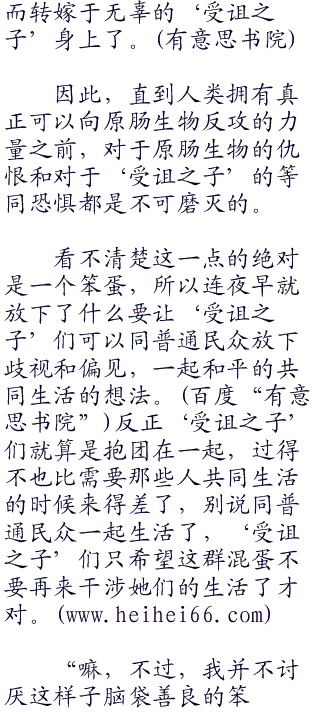 而转嫁于无辜的‘受诅之
子’身上了。(有意思书院)
因此，直到人类拥有真
正可以向原肠生物反攻的力
量之前，对于原肠生物的仇
恨和对于‘受诅之子’的等
同恐惧都是不可磨灭的。
看不清楚这一点的绝对
是一个笨蛋，所以连夜早就
放下了什么要让‘受诅之
子’们可以同普通民众放下
歧视和偏见，一起和平的共
同生活的想法。(百度“有意
思书院”)反正‘受诅之子’
们就算是抱团在一起，过得
不也比需要那些人共同生活
的时候来得差了，别说同普
通民众一起生活了，‘受诅
之子’们只希望这群混蛋不
要再来干涉她们的生活了才
对。(www.heihei66.com)
“嘛，不过，我并不讨
厌这样子脑袋善良的笨